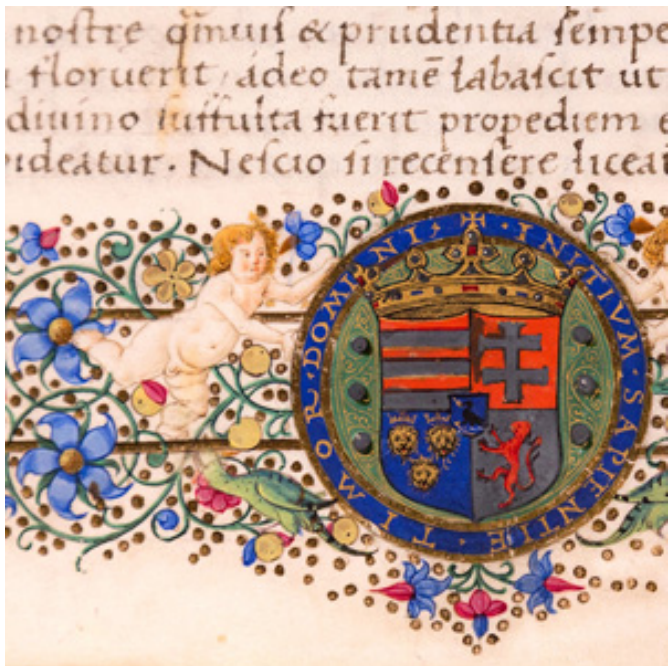 nostrę qmuis & prudentia sempe
floruerit, adeo tamē labascit ut
diuino suffulta fuerit propediem
uideatur. Nescio si recensere licea
✠ INITIVM SAPIENTIE TIMOR DOMINI